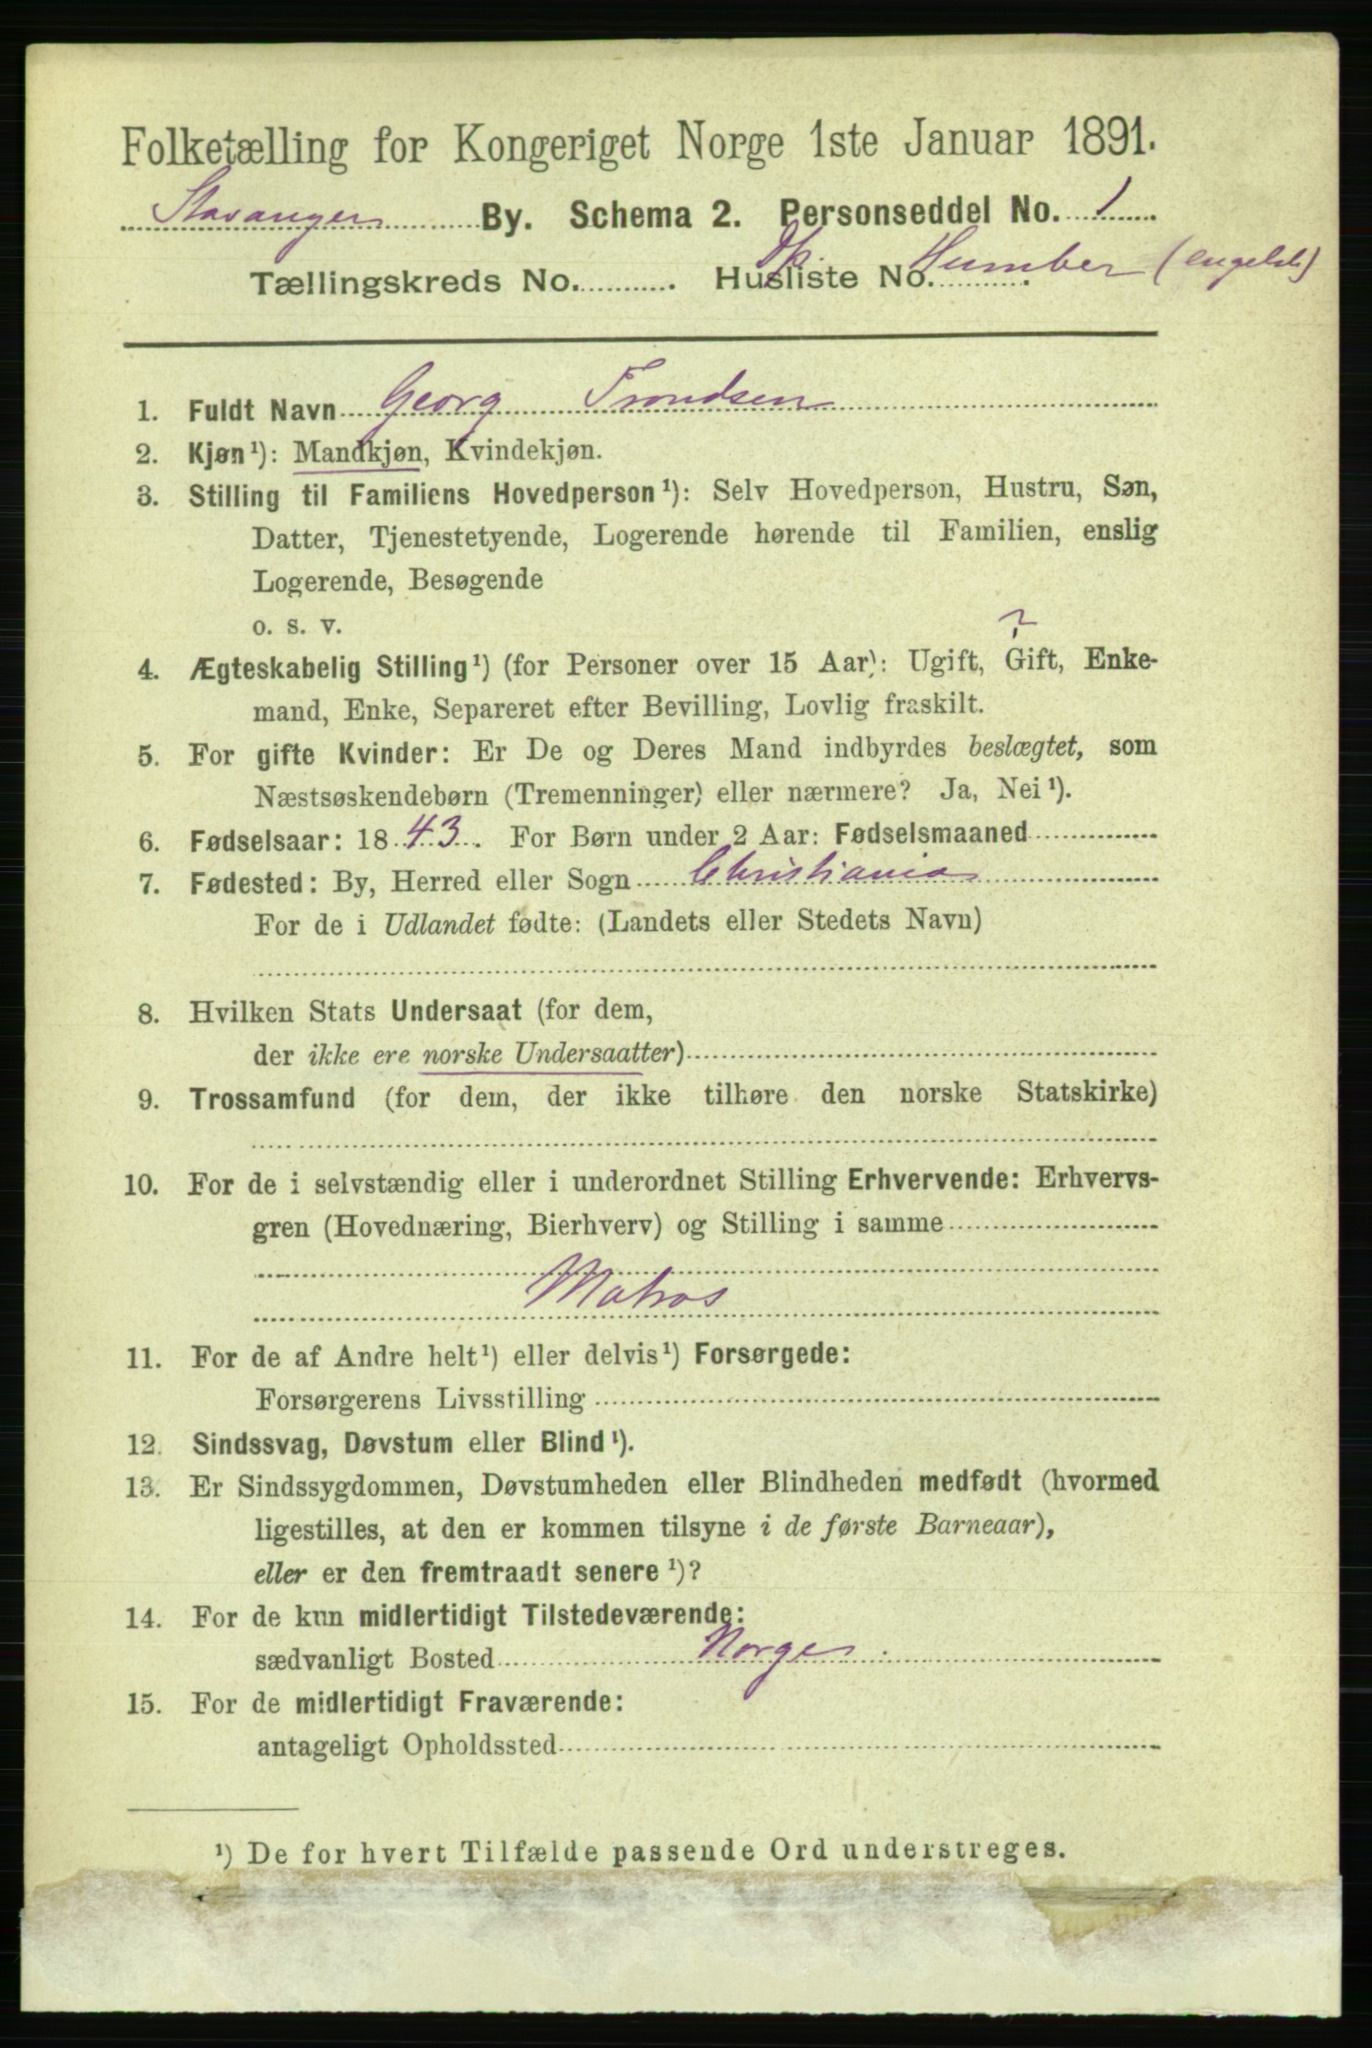 Folketælling for Kongeriget Norge 1ste Januar 1891.
Stavanger By. Schema 2. Personseddel No. 1
Tællingskreds No. Husliste No. Humber (engelsk)
1. Fuldt Navn Georg Trondsen
2. Kjøn¹): Mandkjøn, Kvindekjøn.
3. Stilling til Familiens Hovedperson¹): Selv Hovedperson, Hustru, Søn,
Datter, Tjenestetyende, Logerende hørende til Familien, enslig
Logerende, Besøgende
o. s. v.
?
4. Ægteskabelig Stilling¹) (for Personer over 15 Aar): Ugift, Gift, Enke-
mand, Enke, Separeret efter Bevilling, Lovlig fraskilt.
5. For gifte Kvinder: Er De og Deres Mand indbyrdes beslægtet, som
Næstsøskendebørn (Tremenninger) eller nærmere? Ja, Nei¹).
6. Fødselsaar: 1843. For Børn under 2 Aar: Fødselsmaaned
7. Fødested: By, Herred eller Sogn Christiania
For de i Udlandet fødte: (Landets eller Stedets Navn)
8. Hvilken Stats Undersaat (for dem,
der ikke ere norske Undersaatter)
9. Trossamfund (for dem, der ikke tilhøre den norske Statskirke)
10. For de i selvstændig eller i underordnet Stilling Erhvervende: Erhvervs-
gren (Hovednæring, Bierhverv) og Stilling i samme
Matros
11. For de af Andre helt¹) eller delvis¹) Forsørgede:
Forsørgerens Livsstilling
12. Sindssvag, Døvstum eller Blind¹).
13. Er Sindssygdommen, Døvstumheden eller Blindheden medfødt (hvormed
ligestilles, at den er kommen tilsyne i de første Barneaar),
eller er den fremtraadt senere¹)?
14. For de kun midlertidigt Tilstedeværende:
sædvanligt Bosted Norge.
15. For de midlertidigt Fraværende:
antageligt Opholdssted
¹) De for hvert Tilfælde passende Ord understreges.